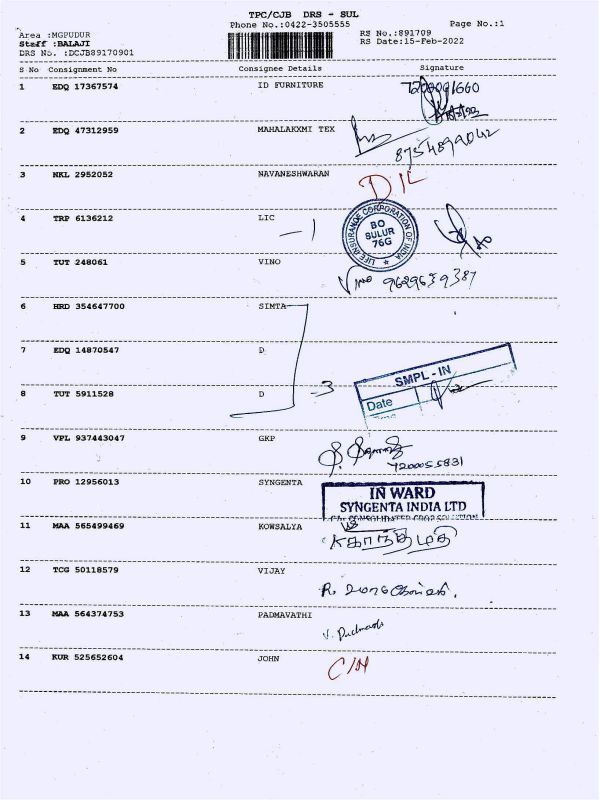 TPC/CJB DRS - SUL
Phone No.:0422-3505555
Page No.:1
Area :MGPUDUR
Staff :BALAJI
DRS No. :DCJB89170901
RS No.:891709
RS Date:15-Feb-2022
S No Consignment No Consignee Details Signature
1 EDQ 17367574 ID FURNITURE 7200091660
2 EDQ 47312959 MAHALAKXMI TEX
8754899042
3 NKL 2952052 NAVANESHWARAN D/L
4 TRP 6136212 LIC - 1
LIFE INSURANCE CORPORATION OF INDIA
BO
SULUR
76G
5 TUT 248061 VINO Vino 9629659387
6 HRD 354647700 SIMTA
7 EDQ 14870547 D
8 TUT 5911528 D - 3
SMPL - IN
Date
9 VPL 937443047 GKP
7200055831
10 PRO 12956013 SYNGENTA
IN WARD
SYNGENTA INDIA LTD
11 MAA 565499469 KOWSALYA
12 TCG 50118579 VIJAY
13 MAA 564374753 PADMAVATHI
14 KUR 525652604 JOHN